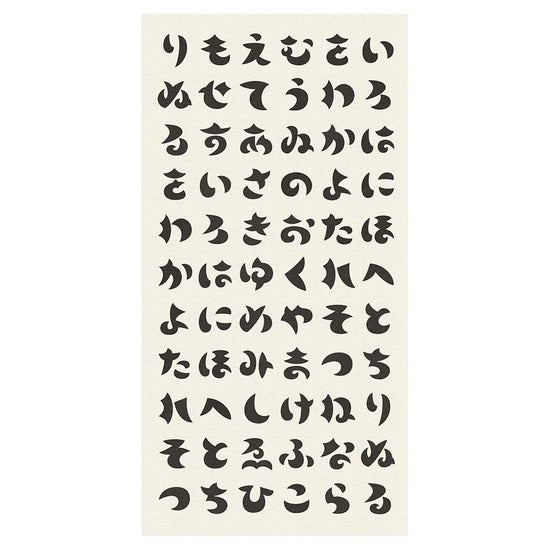 いろはにほへとちりぬる
をわかよたれそつねなら
むうゐのおくやまけふこ
えてあさきゆめみしゑひ
もせすいろはにほへとち
りぬるをわかよたれそつ